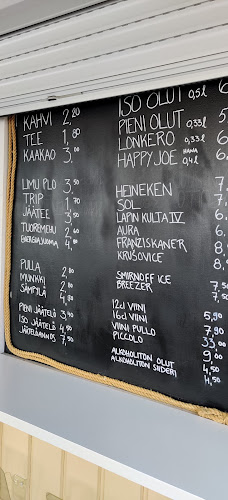 KAHVI 2,20
TEE 1,80
KAAKAO 3,00
LIMU PLO 3,50
TRIP 1,70
JÄÄTEE 3,50
TUOREMEHU 2,60
ENERGIAJUOMA 4,00
PULLA 2,00
MUNKKI 2,00
SÄMPYLÄ 4,00
PIENI JÄÄTELÖ 3,90
ISO JÄÄTELÖ 4,70
3,50
ISO OLUT 0,5l
PIENI OLUT 0,33l
LONKERO 0,33l
HAPPY JOE 0,4l
HEINEKEN
SOL
LAPIN KULTA IV
AURA
FRANZISKANER
KRUŠOVICE
SMIRNOFF ICE 7,50
BREEZER 7,50
12cl VIINI 5,90
16cl VIINI 7,90
VIINI PULLO 33,00
PICCOLO 9,00
ALKOHOLITON OLUT 4,50
ALKOHOLITON SIIDERI 4,50